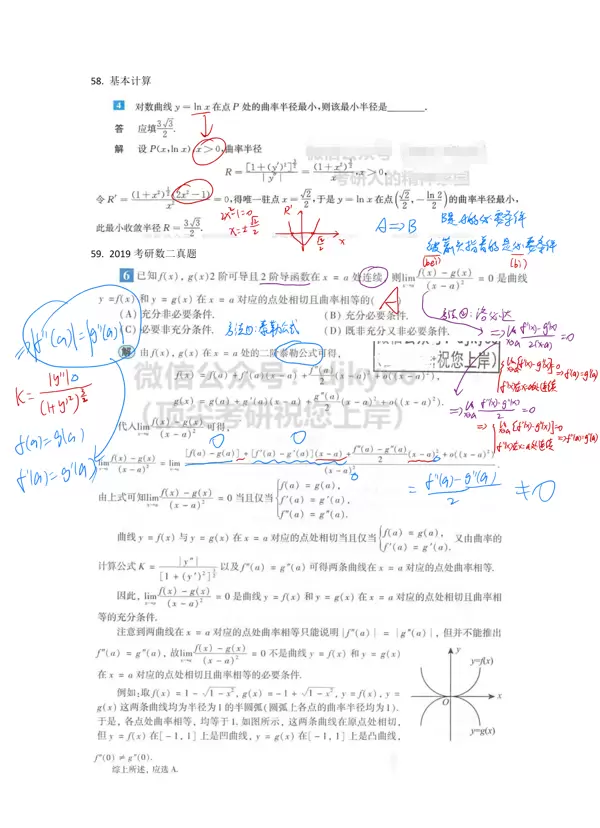 58. 基本计算
4 对数曲线 y = ln x 在点 P 处的曲率半径最小,则该最小半径是________.
答 应填 3√3/2.
解 设 P(x, ln x), x > 0, 曲率半径
R = [1+(y')²]^{3/2} / |y''| = (1+x²)^{3/2} / x, x > 0,
令 R' = (1+x²)^{1/2}(2x²−1) / x² = 0, 得唯一驻点 x = √2/2, 于是 y = ln x 在点 (√2/2, −ln 2/2) 的曲率半径最小,
2x²-1=0
x=±√2/2
R'
√2/2
x
A⇒B
此最小收敛半径 R = 3√3/2.
59. 2019 考研数二真题
6 已知 f(x), g(x) 2 阶可导且 2 阶导函数在 x = a 处连续, 则 lim_{x→a} (f(x) − g(x))/(x−a)² = 0 是曲线
y = f(x) 和 y = g(x) 在 x = a 对应的点处相切且曲率相等的( A )
(A) 充分非必要条件. (B) 充分必要条件.
(C) 必要非充分条件. (D) 既非充分又非必要条件.
⇒|f''(a)|=|g''(a)|
方法①:泰勒公式
方法②:洛必达
解 由 f(x), g(x) 在 x = a 处的二阶泰勒公式可得,
f(x) = f(a) + f'(a)(x−a) + f''(a)/2 (x−a)² + o((x−a)²),
g(x) = g(a) + g'(a)(x−a) + g''(a)/2 (x−a)² + o((x−a)²).
祝您上岸)
代入 lim_{x→a} (f(x) − g(x))/(x−a)² 可得,
f(a)=g(a)
f'(a)=g'(a)
lim_{x→a} (f(x) − g(x))/(x−a)² = lim_{x→a} ([f(a) − g(a)] + [f'(a) − g'(a)](x−a) + (f''(a) − g''(a))/2 (x−a)² + o((x−a)²))/(x−a)².
= (f''(a)-g''(a))/2 ≠0
由上式可知 lim_{x→a} (f(x) − g(x))/(x−a)² = 0 当且仅当 { f(a) = g(a), f'(a) = g'(a), f''(a) = g''(a).
曲线 y = f(x) 与 y = g(x) 在 x = a 对应的点处相切当且仅当 { f(a) = g(a), f'(a) = g'(a). 又由曲率的
计算公式 K = |y''| / [1 + (y')²]^{3/2} 以及 f''(a) = g''(a) 可得两条曲线在 x = a 对应的点处曲率相等.
因此, lim_{x→a} (f(x) − g(x))/(x−a)² = 0 是曲线 y = f(x) 和 y = g(x) 在 x = a 对应的点处相切且曲率相
等的充分条件.
注意到两曲线在 x = a 对应的点处曲率相等只能说明 |f''(a)| = |g''(a)|, 但并不能推出
f''(a) = g''(a), 故 lim_{x→a} (f(x) − g(x))/(x−a)² = 0 不是曲线 y = f(x) 和 y = g(x)
在 x = a 对应的点处相切且曲率相等的必要条件.
例如:取 f(x) = 1 − √(1−x²), g(x) = −1 + √(1−x²), y = f(x), y =
g(x) 这两条曲线均为半径为 1 的半圆弧(圆弧上各点的曲率半径均为 1).
于是, 各点处曲率相等, 均等于 1. 如图所示, 这两条曲线在原点处相切,
但 y = f(x) 在 [−1, 1] 上是凹曲线, y = g(x) 在 [−1, 1] 上是凸曲线,
f''(0) ≠ g''(0).
综上所述, 应选 A.
y
y=f(x)
O
x
y=g(x)